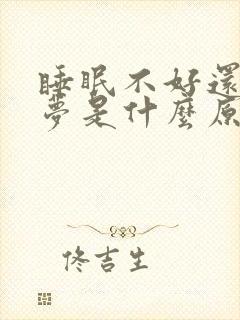 睡眠不好還
夢是什麼原
佟吉生